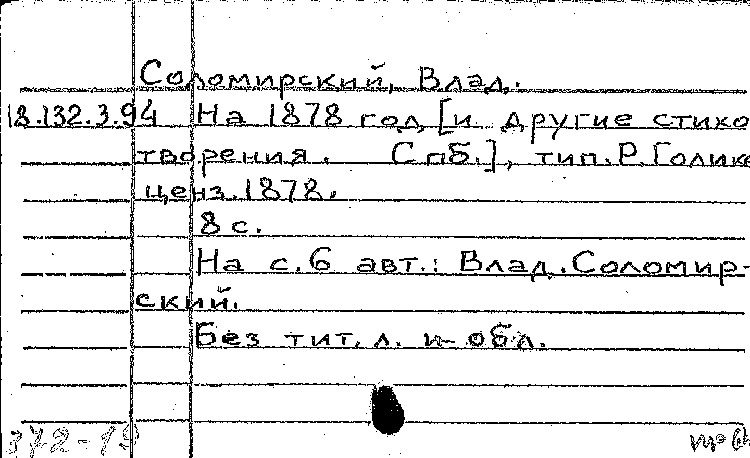 Соломирский, Влад.
18.132.3.94 На 1878 год [и другие стихо
творения. Спб.], тип. Р. Голике
ценз. 1878.
8 с.
На с. 6 авт.: Влад. Соломир-
ский.
Без тит. л. и обл.
372-19